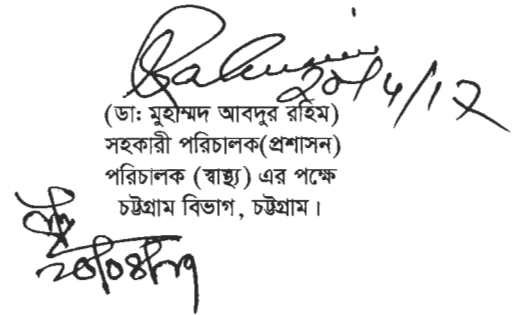 20/4/17
(ডা: মুহাম্মদ আবদুর রহিম)
সহকারী পরিচালক(প্রশাসন)
পরিচালক (স্বাস্থ্য) এর পক্ষে
চট্টগ্রাম বিভাগ, চট্টগ্রাম।
২০/০৪/১৭